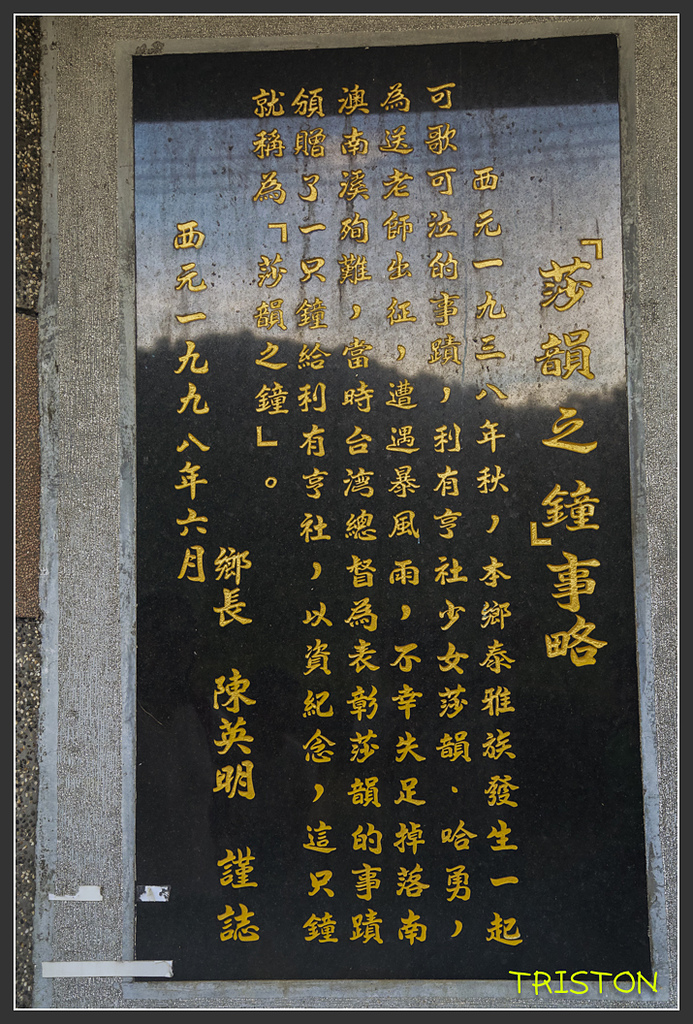 「莎韻之鐘」事略
西元一九三八年秋，本鄉泰雅族發生一起
可歌可泣的事蹟，利有亨社少女莎韻．哈勇，
為送老師出征，遭遇暴風雨，不幸失足掉落南
澳南溪殉難，當時台湾總督為表彰莎韻的事蹟
頒贈了一只鐘給利有亨社，以資紀念，這只鐘
就稱為「莎韻之鐘」。
鄉長 陳英明 謹誌
西元一九九八年六月
TRISTON